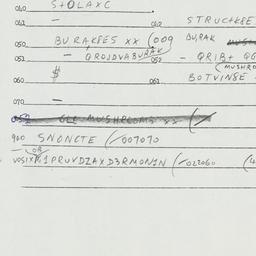 040 STOLAXC
041 — 042 STRUCTKEE
050 BURAKEES XX (009 BURAK
051 — QROJDVABURAK 052 — QRIB+ QG
(MUSHRO
060 $ 061 BOTVINSE -
070 —
052 GLL MUSHROOMS XX
900 SNONCTE (/007070
— OR
VOSIX/61PRUVDZAXD3RMONIN (/022060 (4